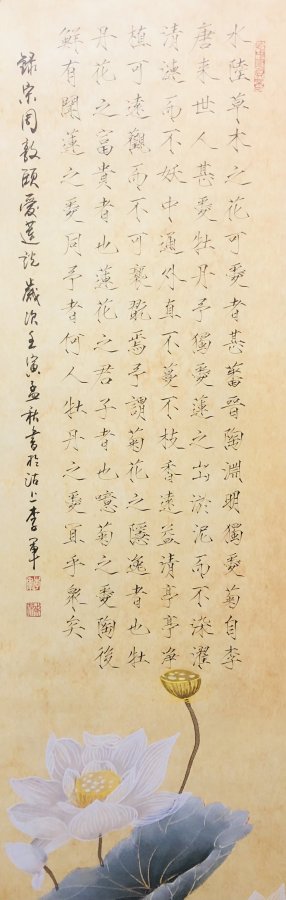 水陸草木之花可愛者甚蕃晉陶淵明獨愛菊自李
唐來世人甚愛牡丹予獨愛蓮之出淤泥而不染濯
清漣而不妖中通外直不蔓不枝香遠益清亭亭淨
植可遠觀而不可褻翫焉予謂菊花之隱逸者也牡
丹花之富貴者也蓮花之君子者也噫菊之愛陶後
鮮有聞蓮之愛同予者何人牡丹之愛宜乎衆矣
錄宋周敦頤愛蓮說 歲次壬寅孟秋書於沽上李軍